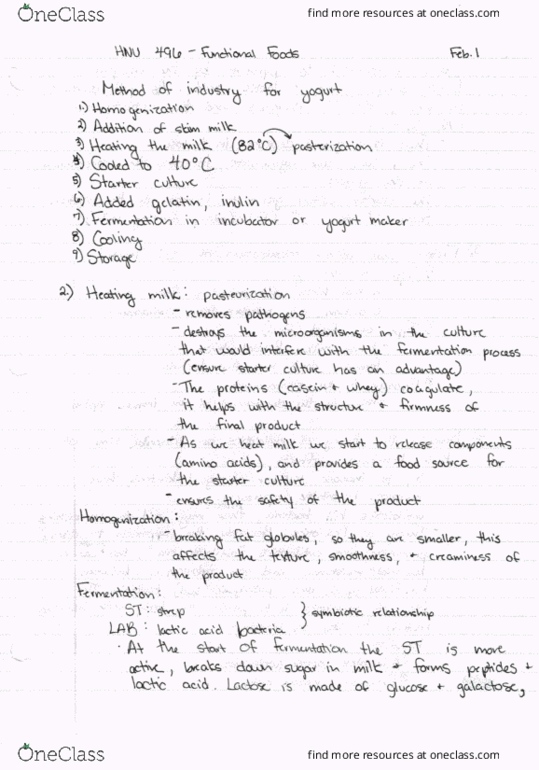 OneClass
find more resources at oneclass.com
HNU 496 - Functional Foods Feb. 1
Method of industry for yogurt
1) Homogenization
2) Addition of skim milk
3) Heating the milk (82°C) pasterization
4) Cooled to 40°C
5) Starter culture
6) Added gelatin, inulin
7) Fermentation in incubator or yogurt maker
8) Cooling
9) Storage
2.) Heating milk: pasteurization
- removes pathogens
- destroys the microorganisms in the culture
that would interfere with the fermentation process
(ensure starter culture has an advantage)
- The proteins (casein + whey) coagulate,
it helps with the structure + firmness of
the final product
- As we heat milk we start to release components
(amino acids), and provides a food source for
the starter culture
- ensures the safety of the product
Homogenization:
- breaking fat globules, so they are smaller, this
affects the texture, smoothness, + creaminess of
the product
Fermentation:
ST: strep } symbiotic relationship
LAB: lactic acid bacteria
· At the start of fermentation the ST is more
active, breaks down sugar in milk + forms peptides +
lactic acid. Lactose is made of glucose + galactose,
OneClass
find more resources at oneclass.com